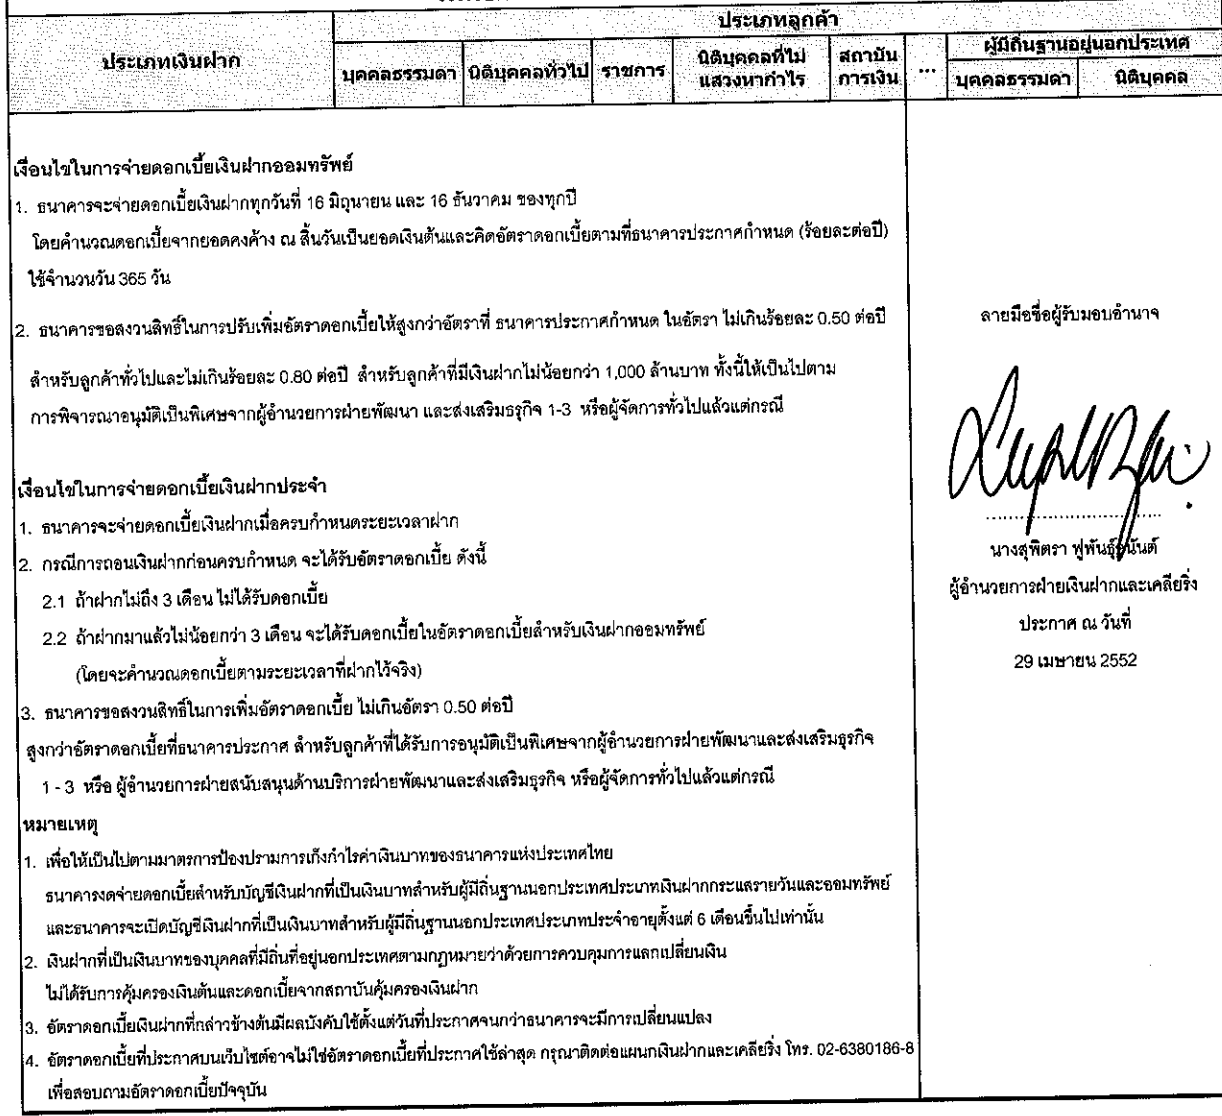 ประเภทลูกค้า
ประเภทเงินฝาก
บุคคลธรรมดา นิติบุคคลทั่วไป ราชการ นิติบุคคลที่ไม่แสวงหากำไร สถาบันการเงิน ... ผู้มีถิ่นฐานอยู่นอกประเทศ
บุคคลธรรมดา นิติบุคคล
เงื่อนไขในการจ่ายดอกเบี้ยเงินฝากออมทรัพย์
1. ธนาคารจะจ่ายดอกเบี้ยเงินฝากทุกวันที่ 16 มิถุนายน และ 16 ธันวาคม ของทุกปี
โดยคำนวณดอกเบี้ยจากยอดคงค้าง ณ สิ้นวันเป็นยอดเงินต้นและคิดอัตราดอกเบี้ยตามที่ธนาคารประกาศกำหนด (ร้อยละต่อปี)
ใช้จำนวนวัน 365 วัน
2. ธนาคารขอสงวนสิทธิ์ในการปรับเพิ่มอัตราดอกเบี้ยให้สูงกว่าอัตราที่ ธนาคารประกาศกำหนด ในอัตรา ไม่เกินร้อยละ 0.50 ต่อปี
สำหรับลูกค้าทั่วไปและไม่เกินร้อยละ 0.80 ต่อปี สำหรับลูกค้าที่มีเงินฝากไม่น้อยกว่า 1,000 ล้านบาท ทั้งนี้ให้เป็นไปตาม
การพิจารณาอนุมัติเป็นพิเศษจากผู้อำนวยการฝ่ายพัฒนา และส่งเสริมธรุกิจ 1-3 หรือผู้จัดการทั่วไปแล้วแต่กรณี
เงื่อนไขในการจ่ายดอกเบี้ยเงินฝากประจำ
1. ธนาคารจะจ่ายดอกเบี้ยเงินฝากเมื่อครบกำหนดระยะเวลาฝาก
2. กรณีการถอนเงินฝากก่อนครบกำหนด จะได้รับอัตราดอกเบี้ย ดังนี้
2.1 ถ้าฝากไม่ถึง 3 เดือน ไม่ได้รับดอกเบี้ย
2.2 ถ้าฝากมาแล้วไม่น้อยกว่า 3 เดือน จะได้รับดอกเบี้ยในอัตราดอกเบี้ยสำหรับเงินฝากออมทรัพย์
(โดยจะคำนวณดอกเบี้ยตามระยะเวลาที่ฝากไว้จริง)
3. ธนาคารขอสงวนสิทธิ์ในการเพิ่มอัตราดอกเบี้ย ไม่เกินอัตรา 0.50 ต่อปี
สูงกว่าอัตราดอกเบี้ยที่ธนาคารประกาศ สำหรับลูกค้าที่ได้รับการอนุมัติเป็นพิเศษจากผู้อำนวยการฝ่ายพัฒนาและส่งเสริมธุรกิจ
1 - 3 หรือ ผู้อำนวยการฝ่ายสนับสนุนด้านบริการฝ่ายพัฒนาและส่งเสริมธุรกิจ หรือผู้จัดการทั่วไปแล้วแต่กรณี
หมายเหตุ
1. เพื่อให้เป็นไปตามมาตรการป้องปรามการเก็งกำไรค่าเงินบาทของธนาคารแห่งประเทศไทย
ธนาคารงดจ่ายดอกเบี้ยสำหรับบัญชีเงินฝากที่เป็นเงินบาทสำหรับผู้มีถิ่นฐานนอกประเทศประเภทเงินฝากกระแสรายวันและออมทรัพย์
และธนาคารจะเปิดบัญชีเงินฝากที่เป็นเงินบาทสำหรับผู้มีถิ่นฐานนอกประเทศประเภทประจำอายุตั้งแต่ 6 เดือนขึ้นไปเท่านั้น
2. เงินฝากที่เป็นเงินบาทของบุคคลที่มีถิ่นที่อยู่นอกประเทศตามกฎหมายว่าด้วยการควบคุมการแลกเปลี่ยนเงิน
ไม่ได้รับการคุ้มครองเงินต้นและดอกเบี้ยจากสถาบันคุ้มครองเงินฝาก
3. อัตราดอกเบี้ยเงินฝากที่กล่าวข้างต้นมีผลบังคับใช้ตั้งแต่วันที่ประกาศจนกว่าธนาคารจะมีการเปลี่ยนแปลง
4. อัตราดอกเบี้ยที่ประกาศบนเว็บไซต์อาจไม่ใช่อัตราดอกเบี้ยที่ประกาศใช้ล่าสุด กรุณาติดต่อแผนกเงินฝากและเคลียริ่ง โทร. 02-6380186-8
เพื่อสอบถามอัตราดอกเบี้ยปัจจุบัน
ลายมือชื่อผู้รับมอบอำนาจ
นางสุพิตรา ฟูพันธุ์อนันต์
ผู้อำนวยการฝ่ายเงินฝากและเคลียริ่ง
ประกาศ ณ วันที่
29 เมษายน 2552